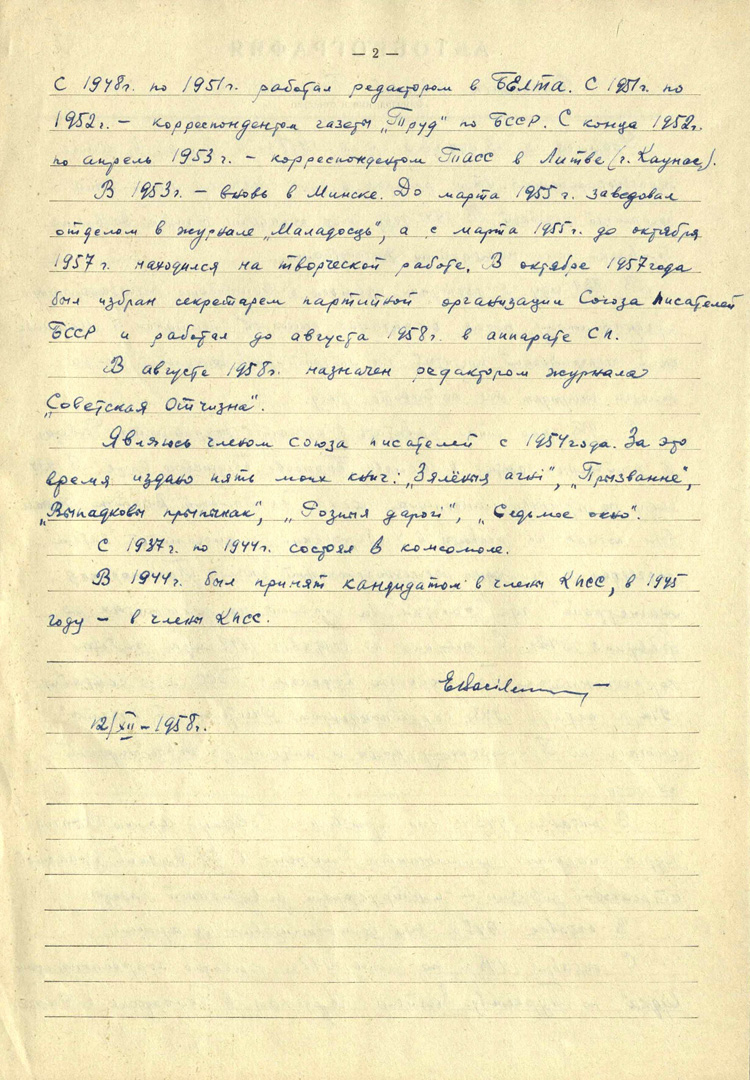 — 2 —
С 1948г. по 1951г. работал редактором в БЕЛТА. С 1951г. по
1952г. – корреспондентом газеты „Труд" по БССР. С конца 1952г.
по апрель 1953г. – корреспондентом ТАСС в Литве (г. Каунас).
В 1953г. – вновь в Минске. До марта 1955г. заведовал
отделом в журнале „Маладосць", а с марта 1955г. до октября
1957г. находился на творческой работе. В октябре 1957 года
был избран секретарем партийной организации Союза писателей
БССР и работал до августа 1958г. в аппарате СП.
В августе 1958г. назначен редактором журнала
„Советская Отчизна".
Являюсь членом союза писателей с 1954 года. За это
время издано пять моих книг: „Зялёныя агні", „Прызванне",
„Выпадковы прыпынак", „Розныя дарогі", „Седьмое окно".
С 1937г. по 1944г. состоял в комсомоле.
В 1944г. был принят кандидатом в члены КПСС, в 1945
году – в члены КПСС.
12/XII – 1958г.